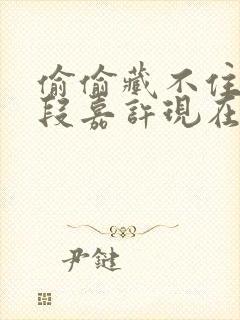 偷偷藏不住
段嘉許現在
尹鍵